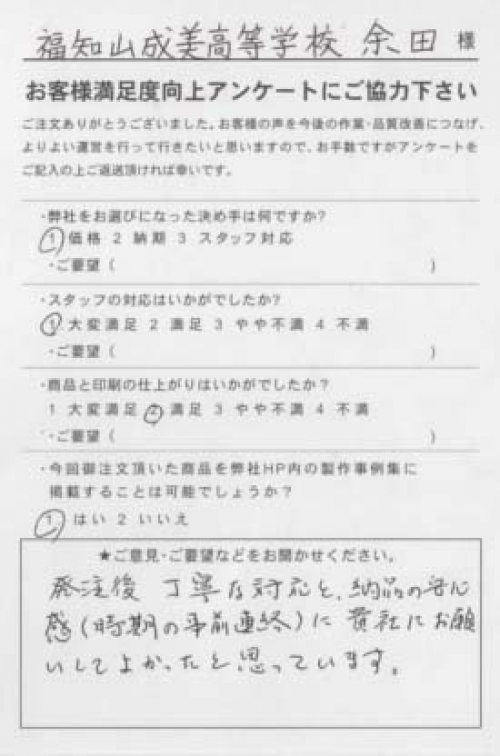 福知山成美高等学校 余田 様
お客様満足度向上アンケートにご協力下さい
ご注文ありがとうございました。お客様の声を今後の作業・品質改善につなげ、
よりよい運営を行って行きたいと思いますので、お手数ですがアンケートを
ご記入の上ご返送頂ければ幸いです。
・弊社をお選びになった決め手は何ですか?
1 価格 2 納期 3 スタッフ対応
・ご要望 ( )
・スタッフの対応はいかがでしたか?
1 大変満足 2 満足 3 やや不満 4 不満
・ご要望 ( )
・商品と印刷の仕上がりはいかがでしたか?
1 大変満足 2 満足 3 やや不満 4 不満
・ご要望 ( )
・今回御注文頂いた商品を弊社HP内の製作事例集に
掲載することは可能でしょうか?
1 はい 2 いいえ
★ご意見・ご要望などをお聞かせください。
発注後 丁寧な対応と、納品の安心
感(時期の事前連絡)に 貴社にお願
いしてよかったと思っています。